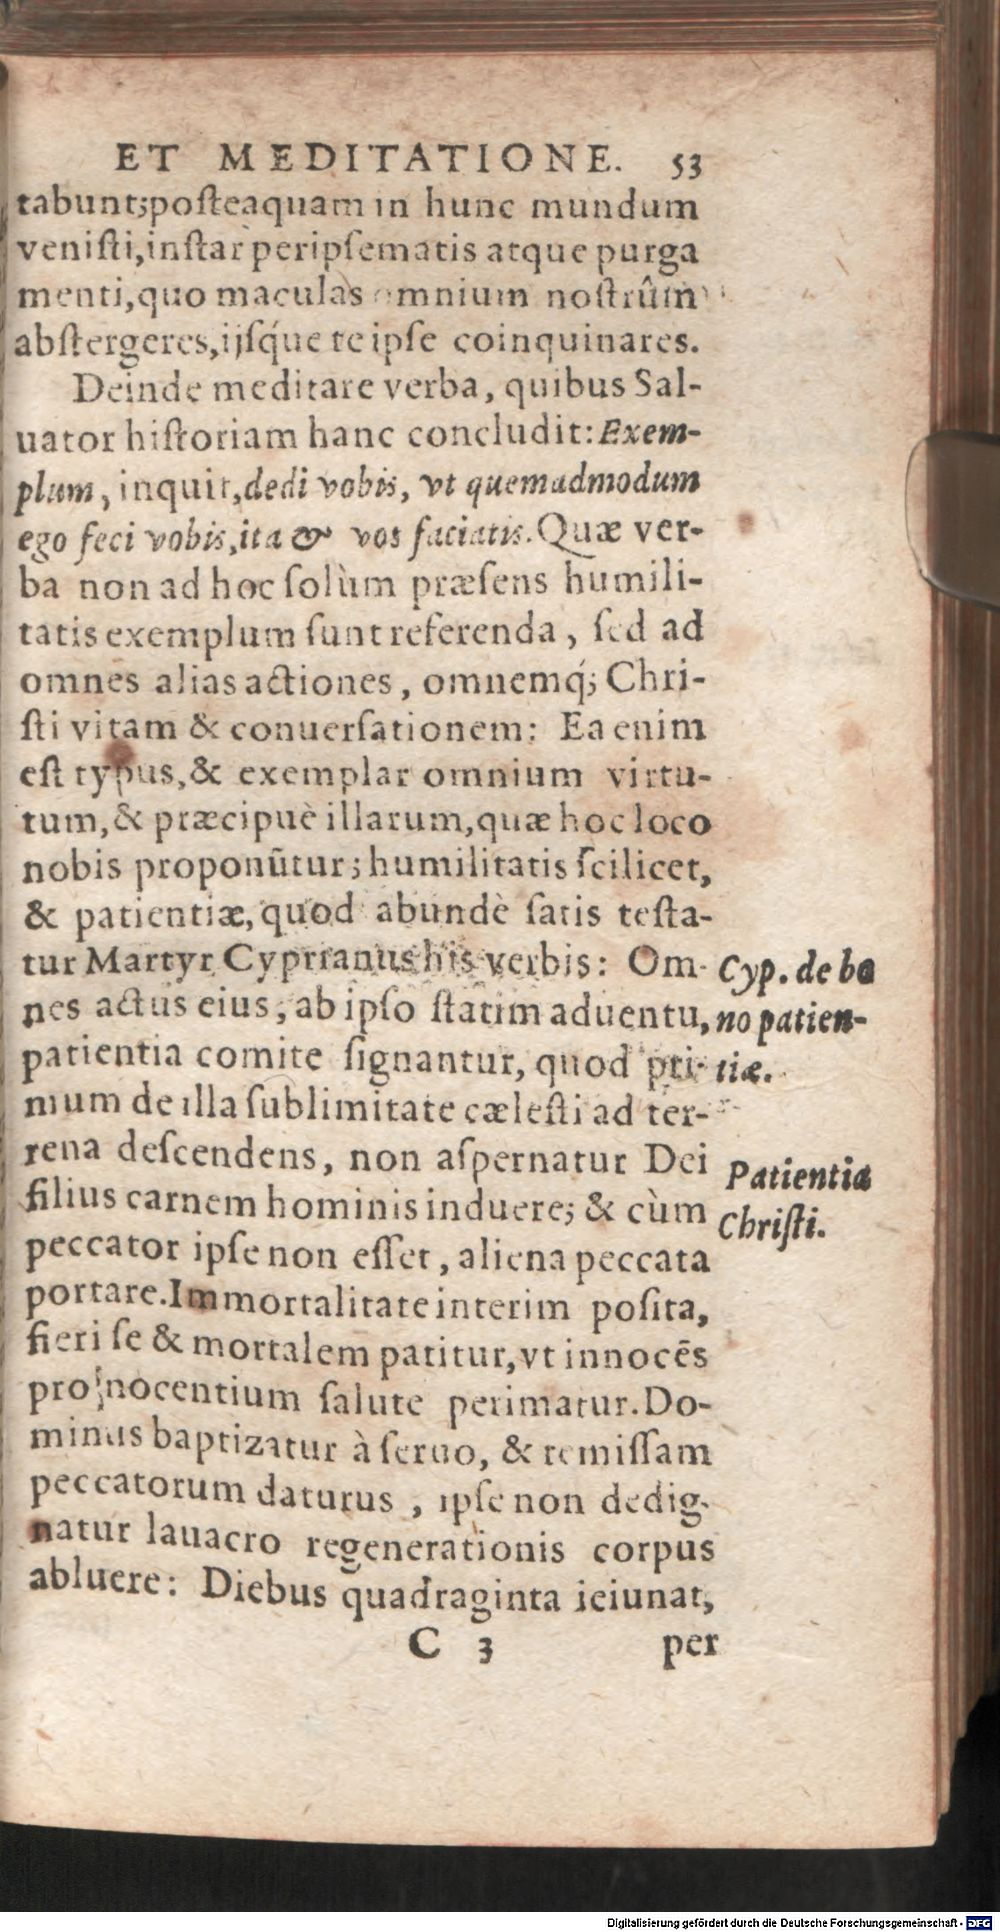 ET MEDITATIONE. 53
tabunt;poſteaquam in hunc mundum
veniſti,inſtar peripſematis atque purga
menti,quo maculas omnium noſtrûm
abſtergeres,ijſq́ue te ipſe coinquinares.
Deinde meditare verba, quibus Sal-
uator hiſtoriam hanc concludit:Exem-
plum, inquit,dedi vobis, vt quemadmodum
ego feci vobis,ita & vos faciatis.Quæ ver-
ba non ad hoc ſolùm præſens humili-
tatis exemplum ſunt referenda, ſed ad
omnes alias actiones, omnemq́; Chri-
ſti vitam & conuerſationem: Ea enim
eſt typus,& exemplar omnium virtu-
tum,& præcipuè illarum,quæ hoc loco
nobis proponūtur;humilitatis ſcilicet,
& patientiæ,quod abundè ſatis teſta-
tur Martyr Cyprianus his verbis: Om-
nes actus eius, ab ipſo ſtatim aduentu,
patientia comite ſignantur, quod pri-
mum de illa ſublimitate cæleſti ad ter-
rena deſcendens, non aſpernatur Dei
filius carnem hominis induere; & cùm
peccator ipſe non eſſet, aliena peccata
portare.Immortalitate interim poſita,
fieri ſe & mortalem patitur,vt innocēs
pro nocentium ſalute perimatur.Do-
minus baptizatur à ſeruo, & remiſſam
peccatorum daturus, ipſe non dedig-
natur lauacro regenerationis corpus
abluere: Diebus quadraginta ieiunat,
C 3 per
Cyp. de bo
no patien-
tiæ.
Patientia
Chriſti.
Digitalisierung gefördert durch die Deutsche Forschungsgemeinschaft - DFG